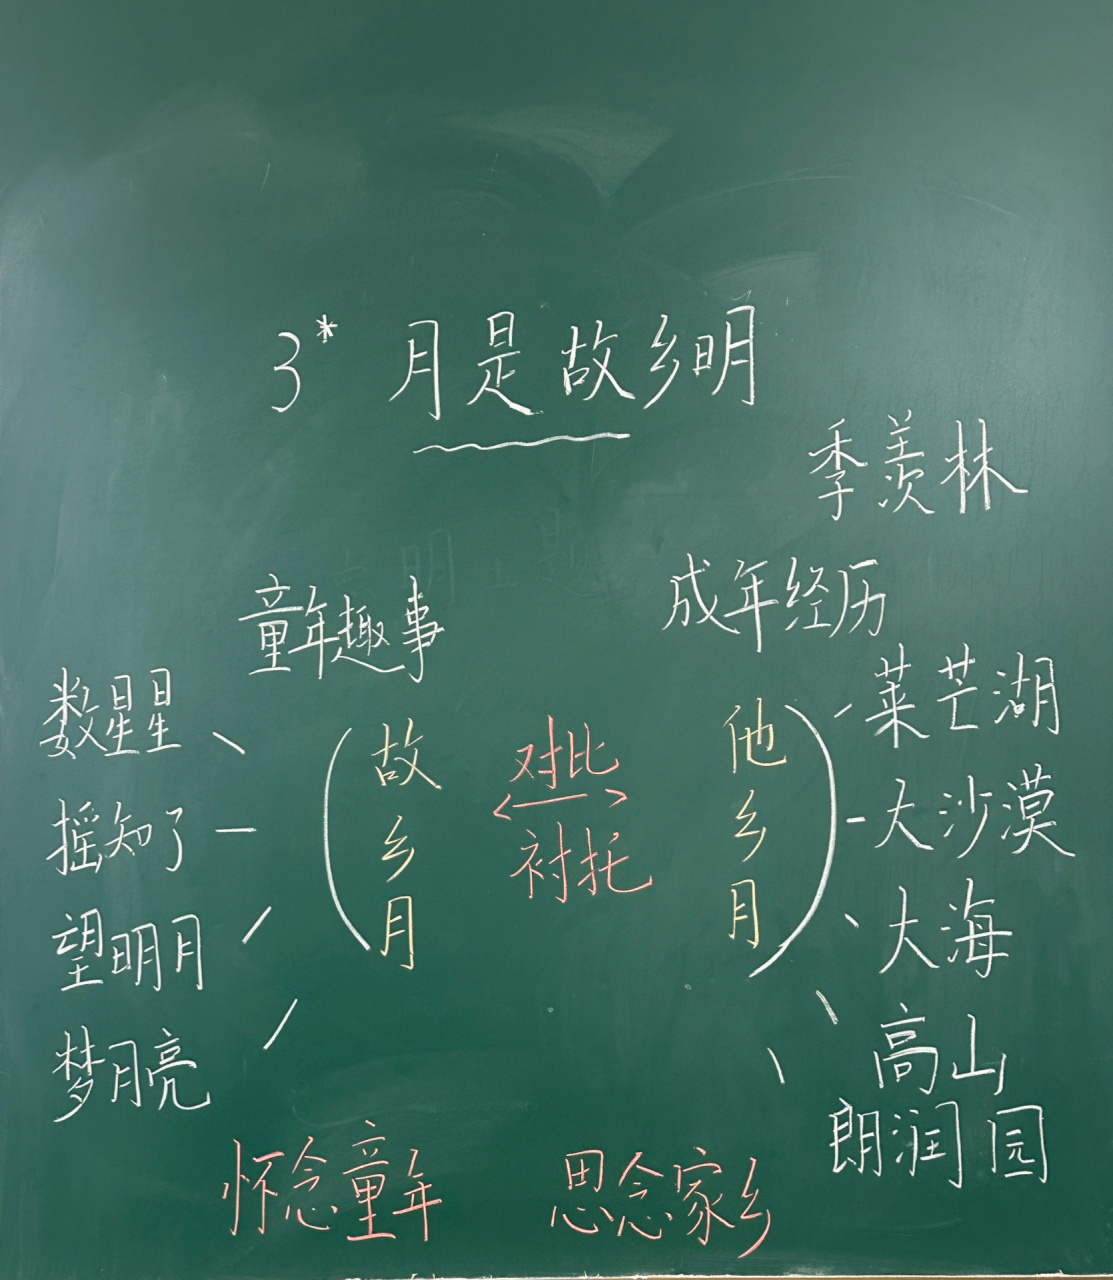 3* 月是故乡明
季羡林
童年趣事
数星星
摇知了
望明月
梦月亮
故乡月
对比
衬托
成年经历
他乡月
莱芒湖
大沙漠
大海
高山
朗润园
怀念童年 思念家乡